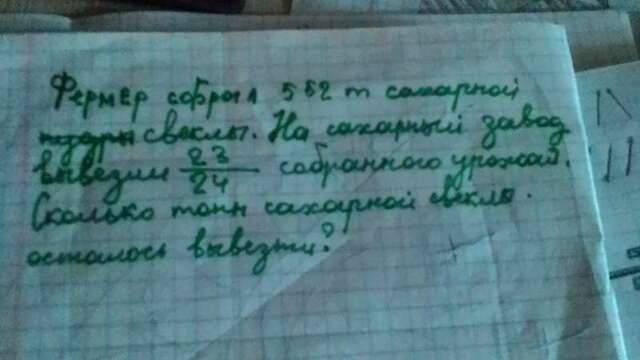 Фермер собрал 552 т сахарной
свеклы. На сахарный завод
вывезли 23/24 собранного урожай.
Сколько тонн сахарной свеклы.
осталось вывезти?